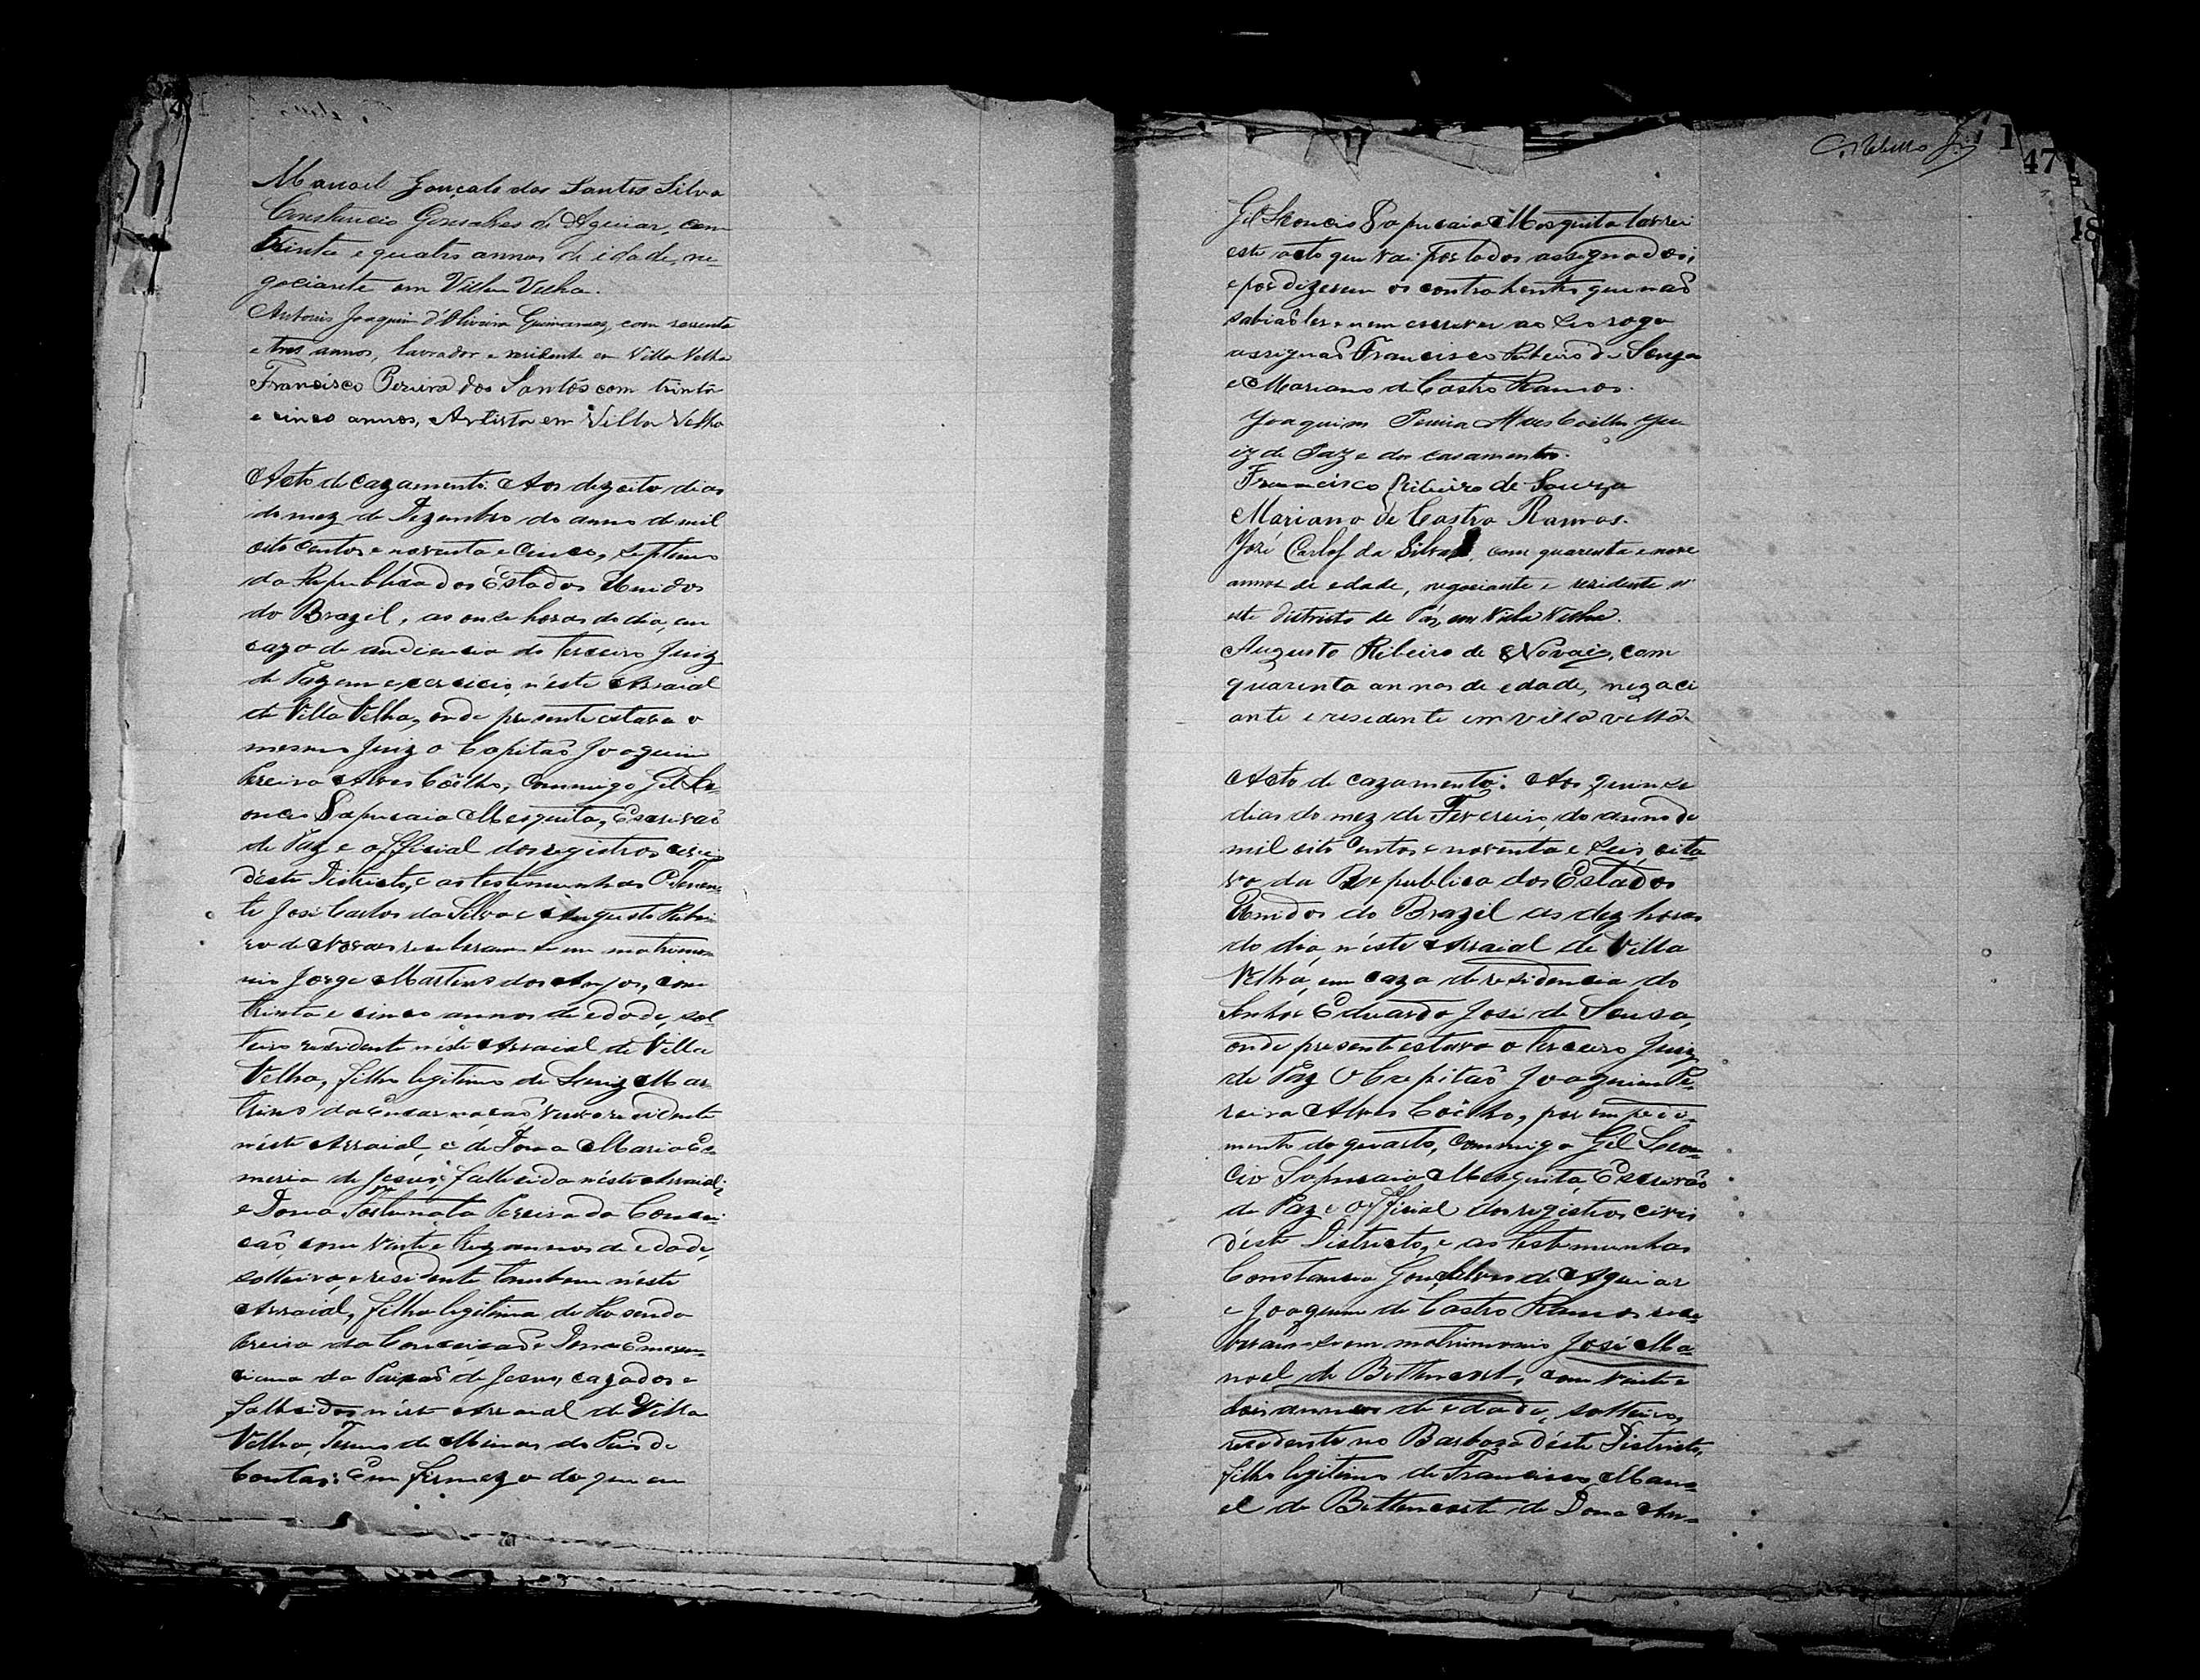 Manoel Gonçalo dos Santos Silva
Constancio Gonsalves d'Aguiar, com
trinta e quatro annos de idade, ne-
gociante em Villa Velha.
Antonio Joaquim d'Oliveira Guimarães, com sessenta
e tres annos, lavrador e residente em Villa Velha
Francisco Pereira dos Santos com trinta
e cinco annos, Artista em Villa Velha
Acto de cazamento. Aos dezoito dias
do mez de Dezembro do anno de mil
oito centos e noventa e cinco, septimo
da Republica dos Estados Unidos
do Brazil, as onze horas do dia, em
caza de audiencia do terceiro Juiz
de Paz em exercicio, n'éste Arraial
de Villa Velha, onde presente estava o
mesmo Juiz o Capitaõ Joaquim
Pereira Alves Coêlho, commigo Gil Le-
oncio Sapucaia Mesquita, Escrivaõ
de Paz e official dos registros civis
d'éste Districto, e as testemunhas Tenen-
te José Carlos da Silva e Augusto Ribei-
ro de Novaes receberam-se em matrimo-
nio Jorge Martins dos Anjos, com
trinta e cinco annos de edade, sol-
teiro residente n'éste Arraial de Villa
Velha, filho legitimo de Luiz Mar-
tins da Encarnacaõ, viuvo residente
n'éste Arraial, e de Dona Maria Es-
meria de Jesus, fallecida n'éste Arraial;
e Dona Fortunata Pereira da Concei-
caõ, com vinte e trez annos de edade,
solteira, e residente tambem n'éste
Arraial, filha legitima de Rosendo
Pereira da Conceicaõ e Dona Emeren-
ciana da Paixaõ de Jesus, cazados e
fallecidos n'éste Arraial de Villa
Velha, Termo de Minas do Rio de
Contas: Em firmeza do que eu
C. Rebello Jr
1
47
48
Gil Leoncio Sapucaia Mesquita lavrei
este acto que vai por todos assignados;
e por dizerem os contrahentes que naõ
sabiaõ ler e nem escrever ao seo rogo
assignaõ Francisco Ribeiro de Souza
e Mariano de Castro Ramos.
Joaquim Pereira Alves Coelho Ju-
iz de Paz e dos casamentos.
Francisco Ribeiro de Souza
Mariano de Castro Ramos.
José Carlos da Silva, com quarenta e nove
annos de edade, negociante e residente n'
este districto de Paz, em Villa Velha.
Augusto Ribeiro de Novais, com
quarenta annos de edade, negoci
ante e residente em villa velha.
Acto de cazamento: Aos quinze
dias do mez de Fevereiro, do anno de
mil oito centos e noventa e seis, oita-
vo da Republica dos Estados
Unidos do Brazil as dez horas
do dia, n'éste Arraial de Villa
Velha, em caza de residencia do
Senhor Eduardo José de Sousa,
onde presente estava o terceiro Juiz
de Paz o Capitaõ Joaquim Pe-
reira Alves Coêlho, por impedi-
mento do quarto, commigo Gil Leon-
cio Sapucaia Mesquita, Escrivaõ
de Paz e official dos registros civis
d'éste Districto, e as testemunhas
Constancio Gonçalves de Aguiar
e Joaquim de Castro Ramos rece-
beram-se em matrimonio José Ma-
noel de Bittencort, com vinte e
dois annos de edade, solteiro,
residente no Barbosa d'éste Districto,
filho legitimo de Francisco Mano-
el de Bittencort e de Dona An-